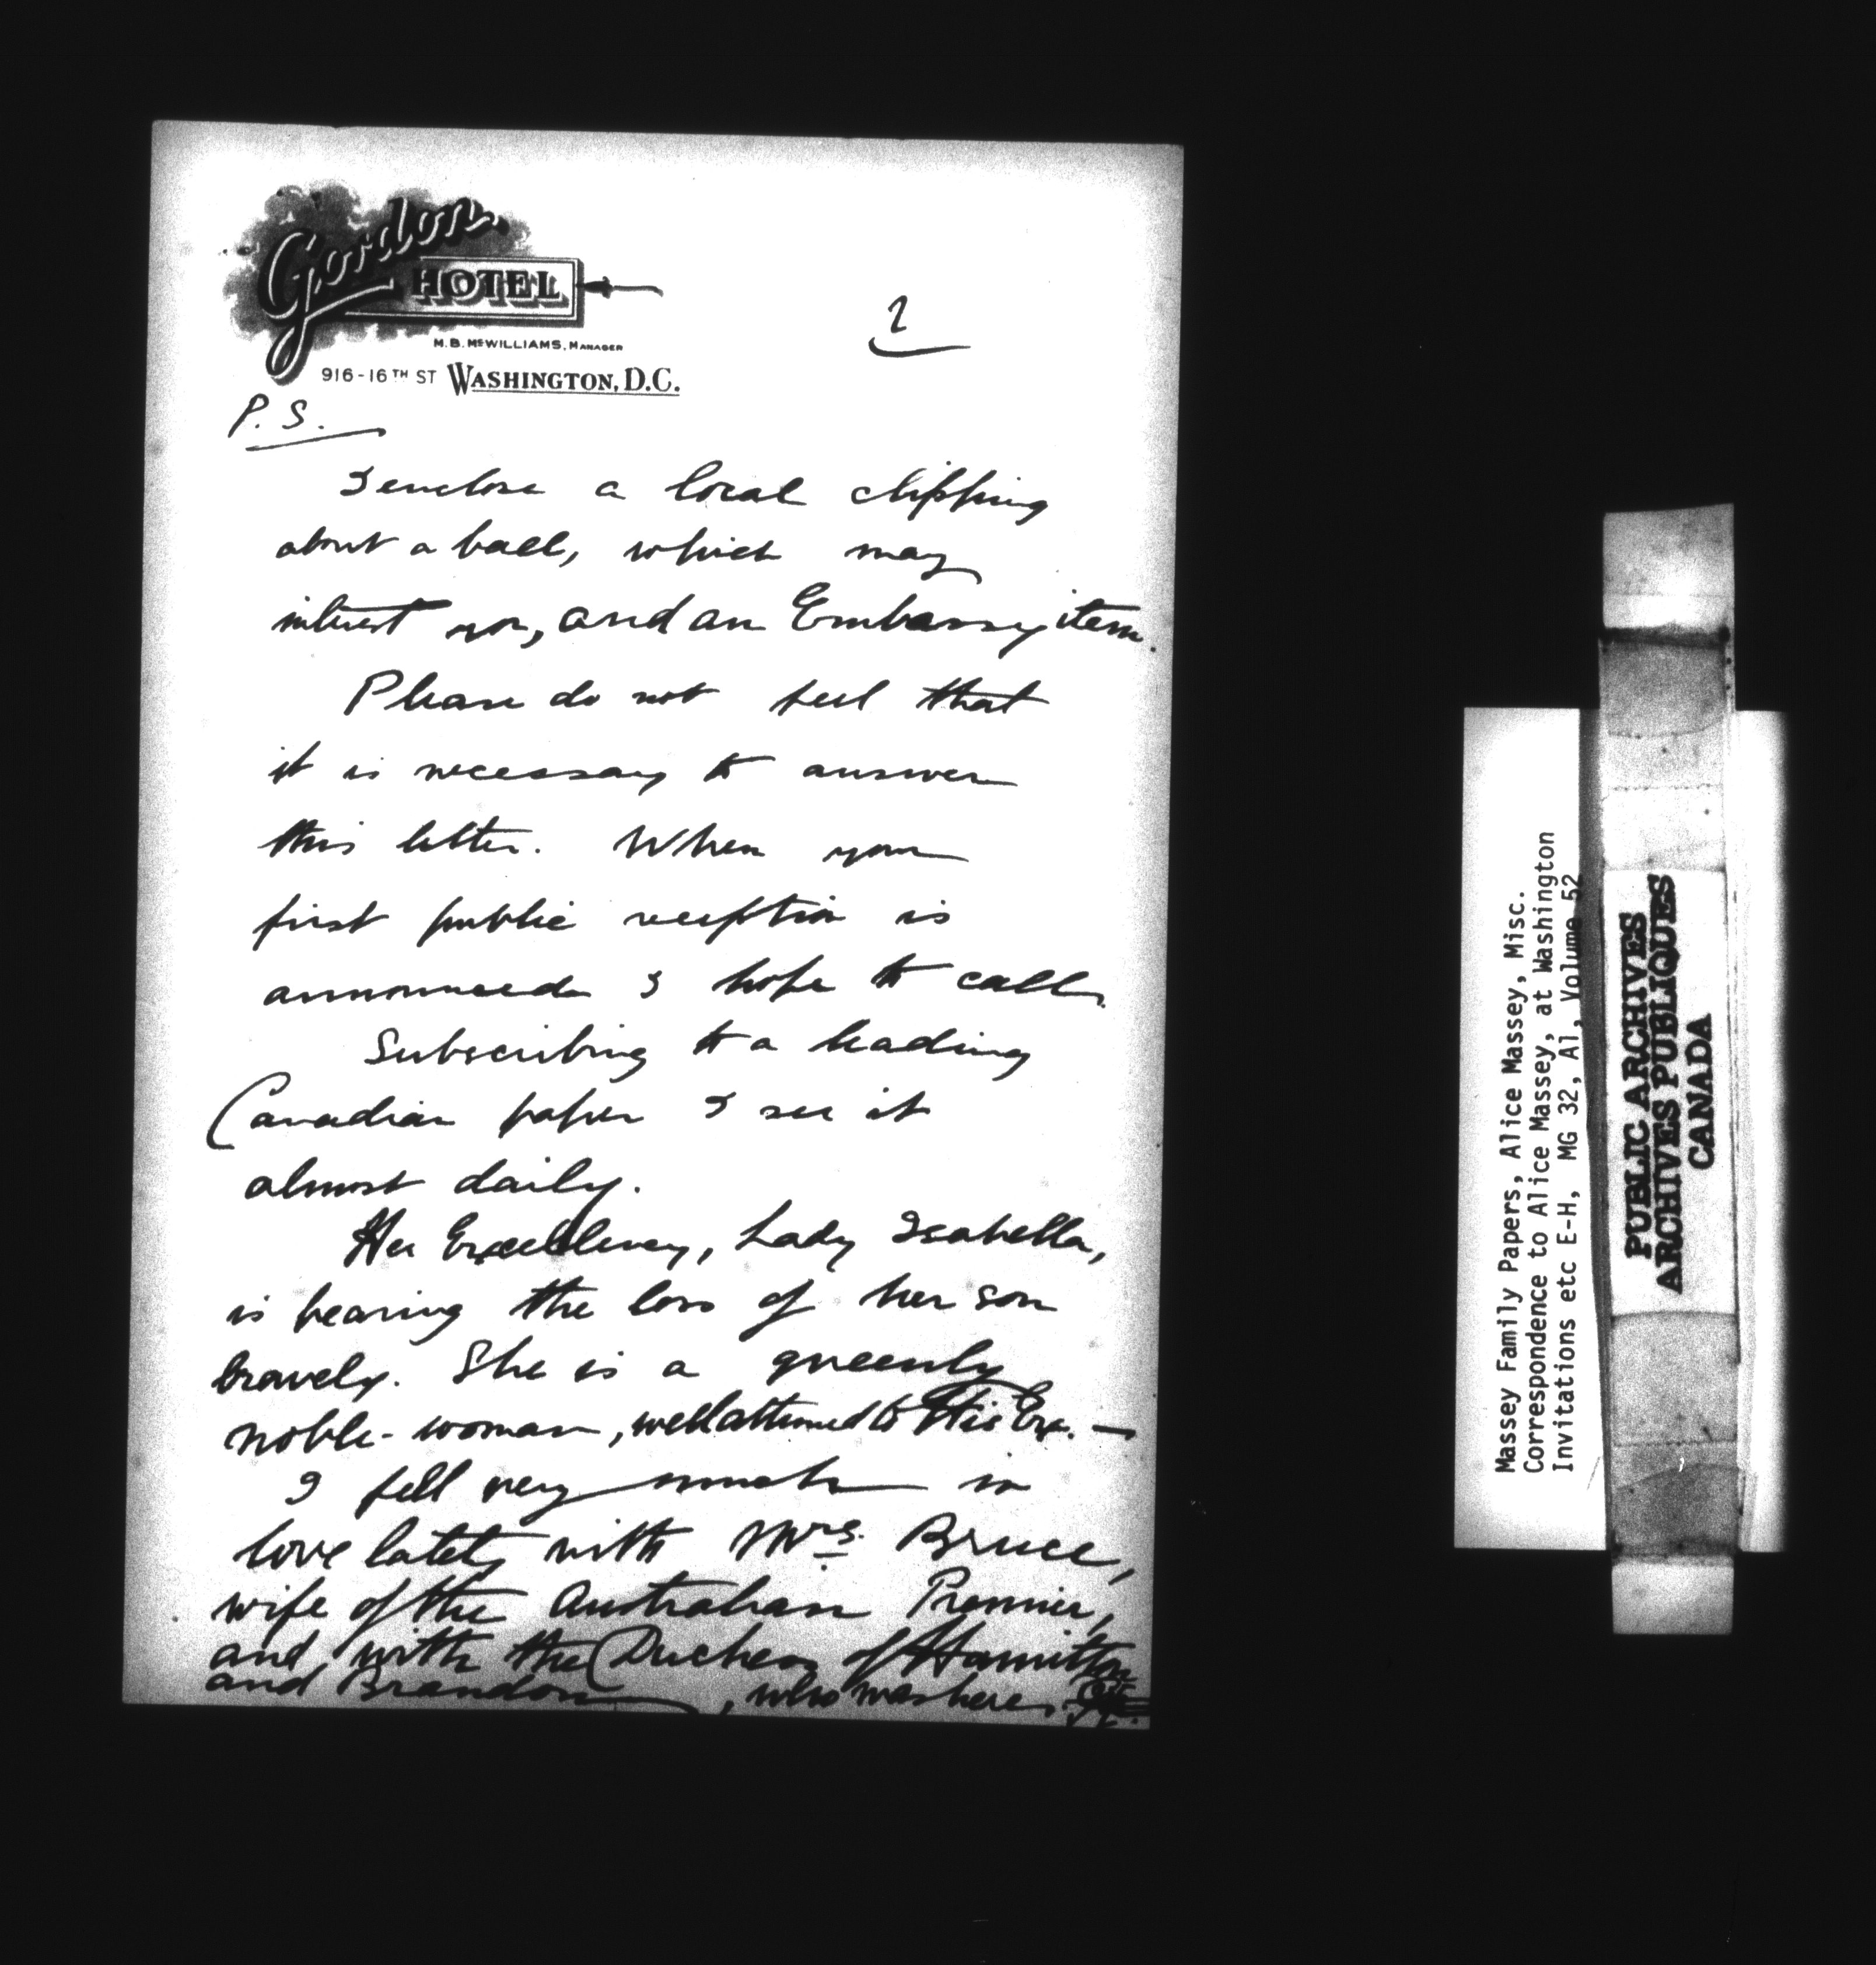 Gordon
HOTEL
M. B. McWILLIAMS, MANAGER
916-16TH ST WASHINGTON, D.C.
2
P. S.
I enclose a local clipping
about a ball, which may
interest you, and an Embassy item.
Please do not feel that
it is necessary to answer
this letter. When your
first public reception is
announced I hope to call.
Subscribing to a leading
Canadian paper I see it
almost daily.
Her Excellency, Lady Isabella,
is bearing the loss of her son
bravely. She is a queenly
noble-woman, well attuned to His Ex. —
I fell very much in
love lately with Mrs. Bruce,
wife of the Australian Premier,
and with the Duchess of Hamilton
and Brandon, who was here
Massey Family Papers, Alice Massey, Misc.
Correspondence to Alice Massey, at Washington
Invitations etc E-H, MG 32, A1, Volume 52
PUBLIC ARCHIVES
ARCHIVES PUBLIQUES
CANADA